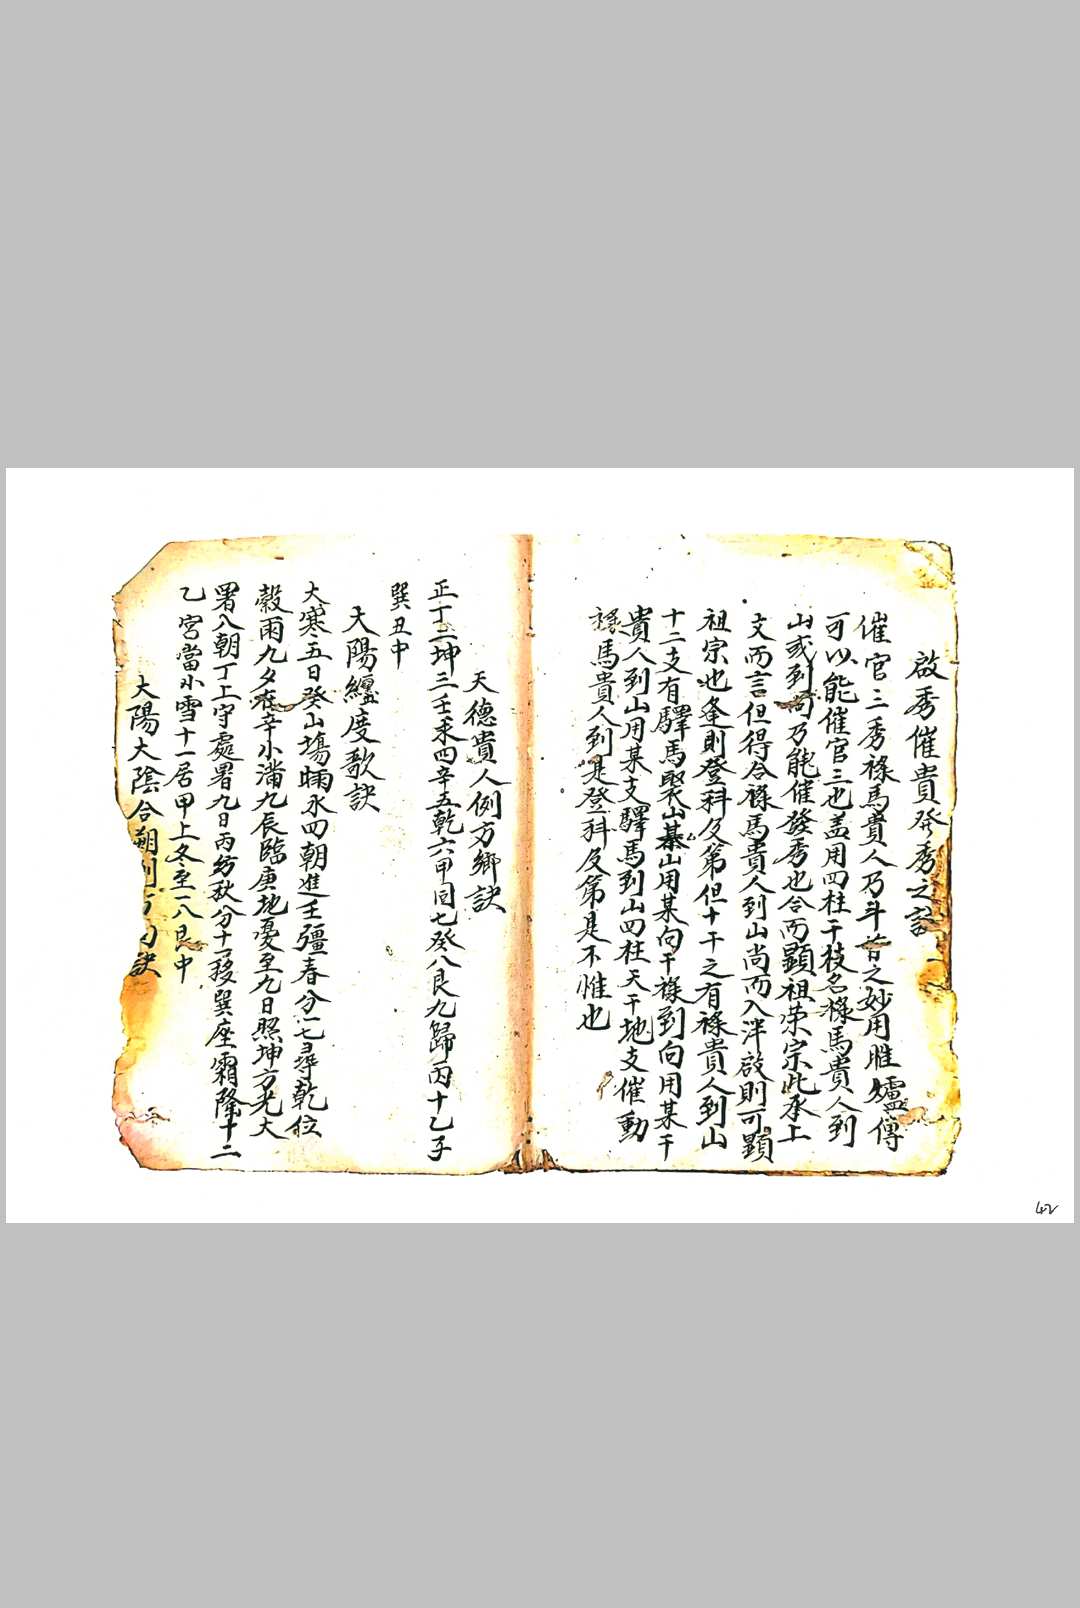 啟秀催貴發秀之訣
催官三秀祿馬貴人乃斗首之妙用胜爐傳
可以能催官三也盖用四柱干枝名祿馬貴人到
山或到向乃能催發秀也合而顕祖荣宗此承上
文而言但得合祿馬貴人到山尚而入泮啟則可顕
祖宗也逢則登科及第但十干之有祿貴人到山
十二支有驛馬聚山某山用某向干祿到向用某干
貴人到山用某支驛馬到山四柱天干地支催動
祿馬貴人到是登科及第是不惟也
天德貴人例方鄉訣
正丁二坤三壬未四辛五乾六甲同七癸八艮九歸丙十乙子
巽丑中
太陽纏度歌訣
大寒五日癸山塲 永四朝進壬疆春分一七尋乾位
穀雨九夕在辛小滿九辰臨庚地憂至九日照坤方老大
署八朝丁上守處署九日丙紡秋分十一 巽座霜降十二
乙宮當小雪十一居甲上冬至一八艮中
太陽太陰合朔到方向訣
42